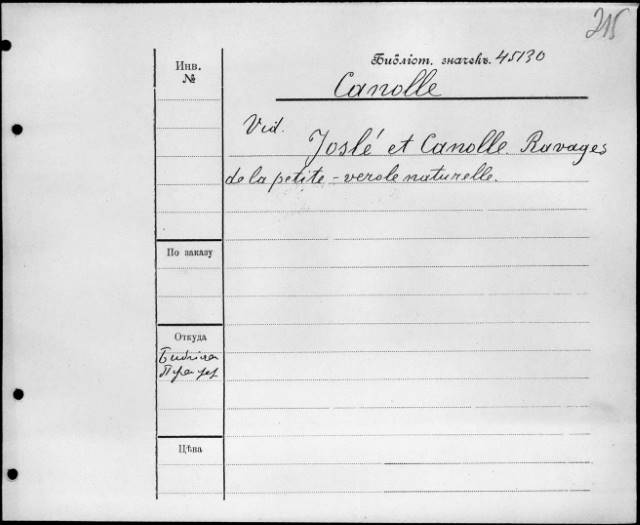 215
Инв.
№
Библіот. значекъ. 45130
Canolle
Vid.
Joslé et Canolle. Ravages
de la petite-verole naturelle.
По заказу
Откуда
Цѣна